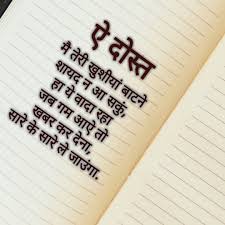 ऐ दोस्त
मै तेरी खुशीयां बाटने
शायद न आ सकुं,
हा ये वादा रहा
जब गम आऐ तो
खबर कर देना,
सारे के सारे ले जाउंगा.